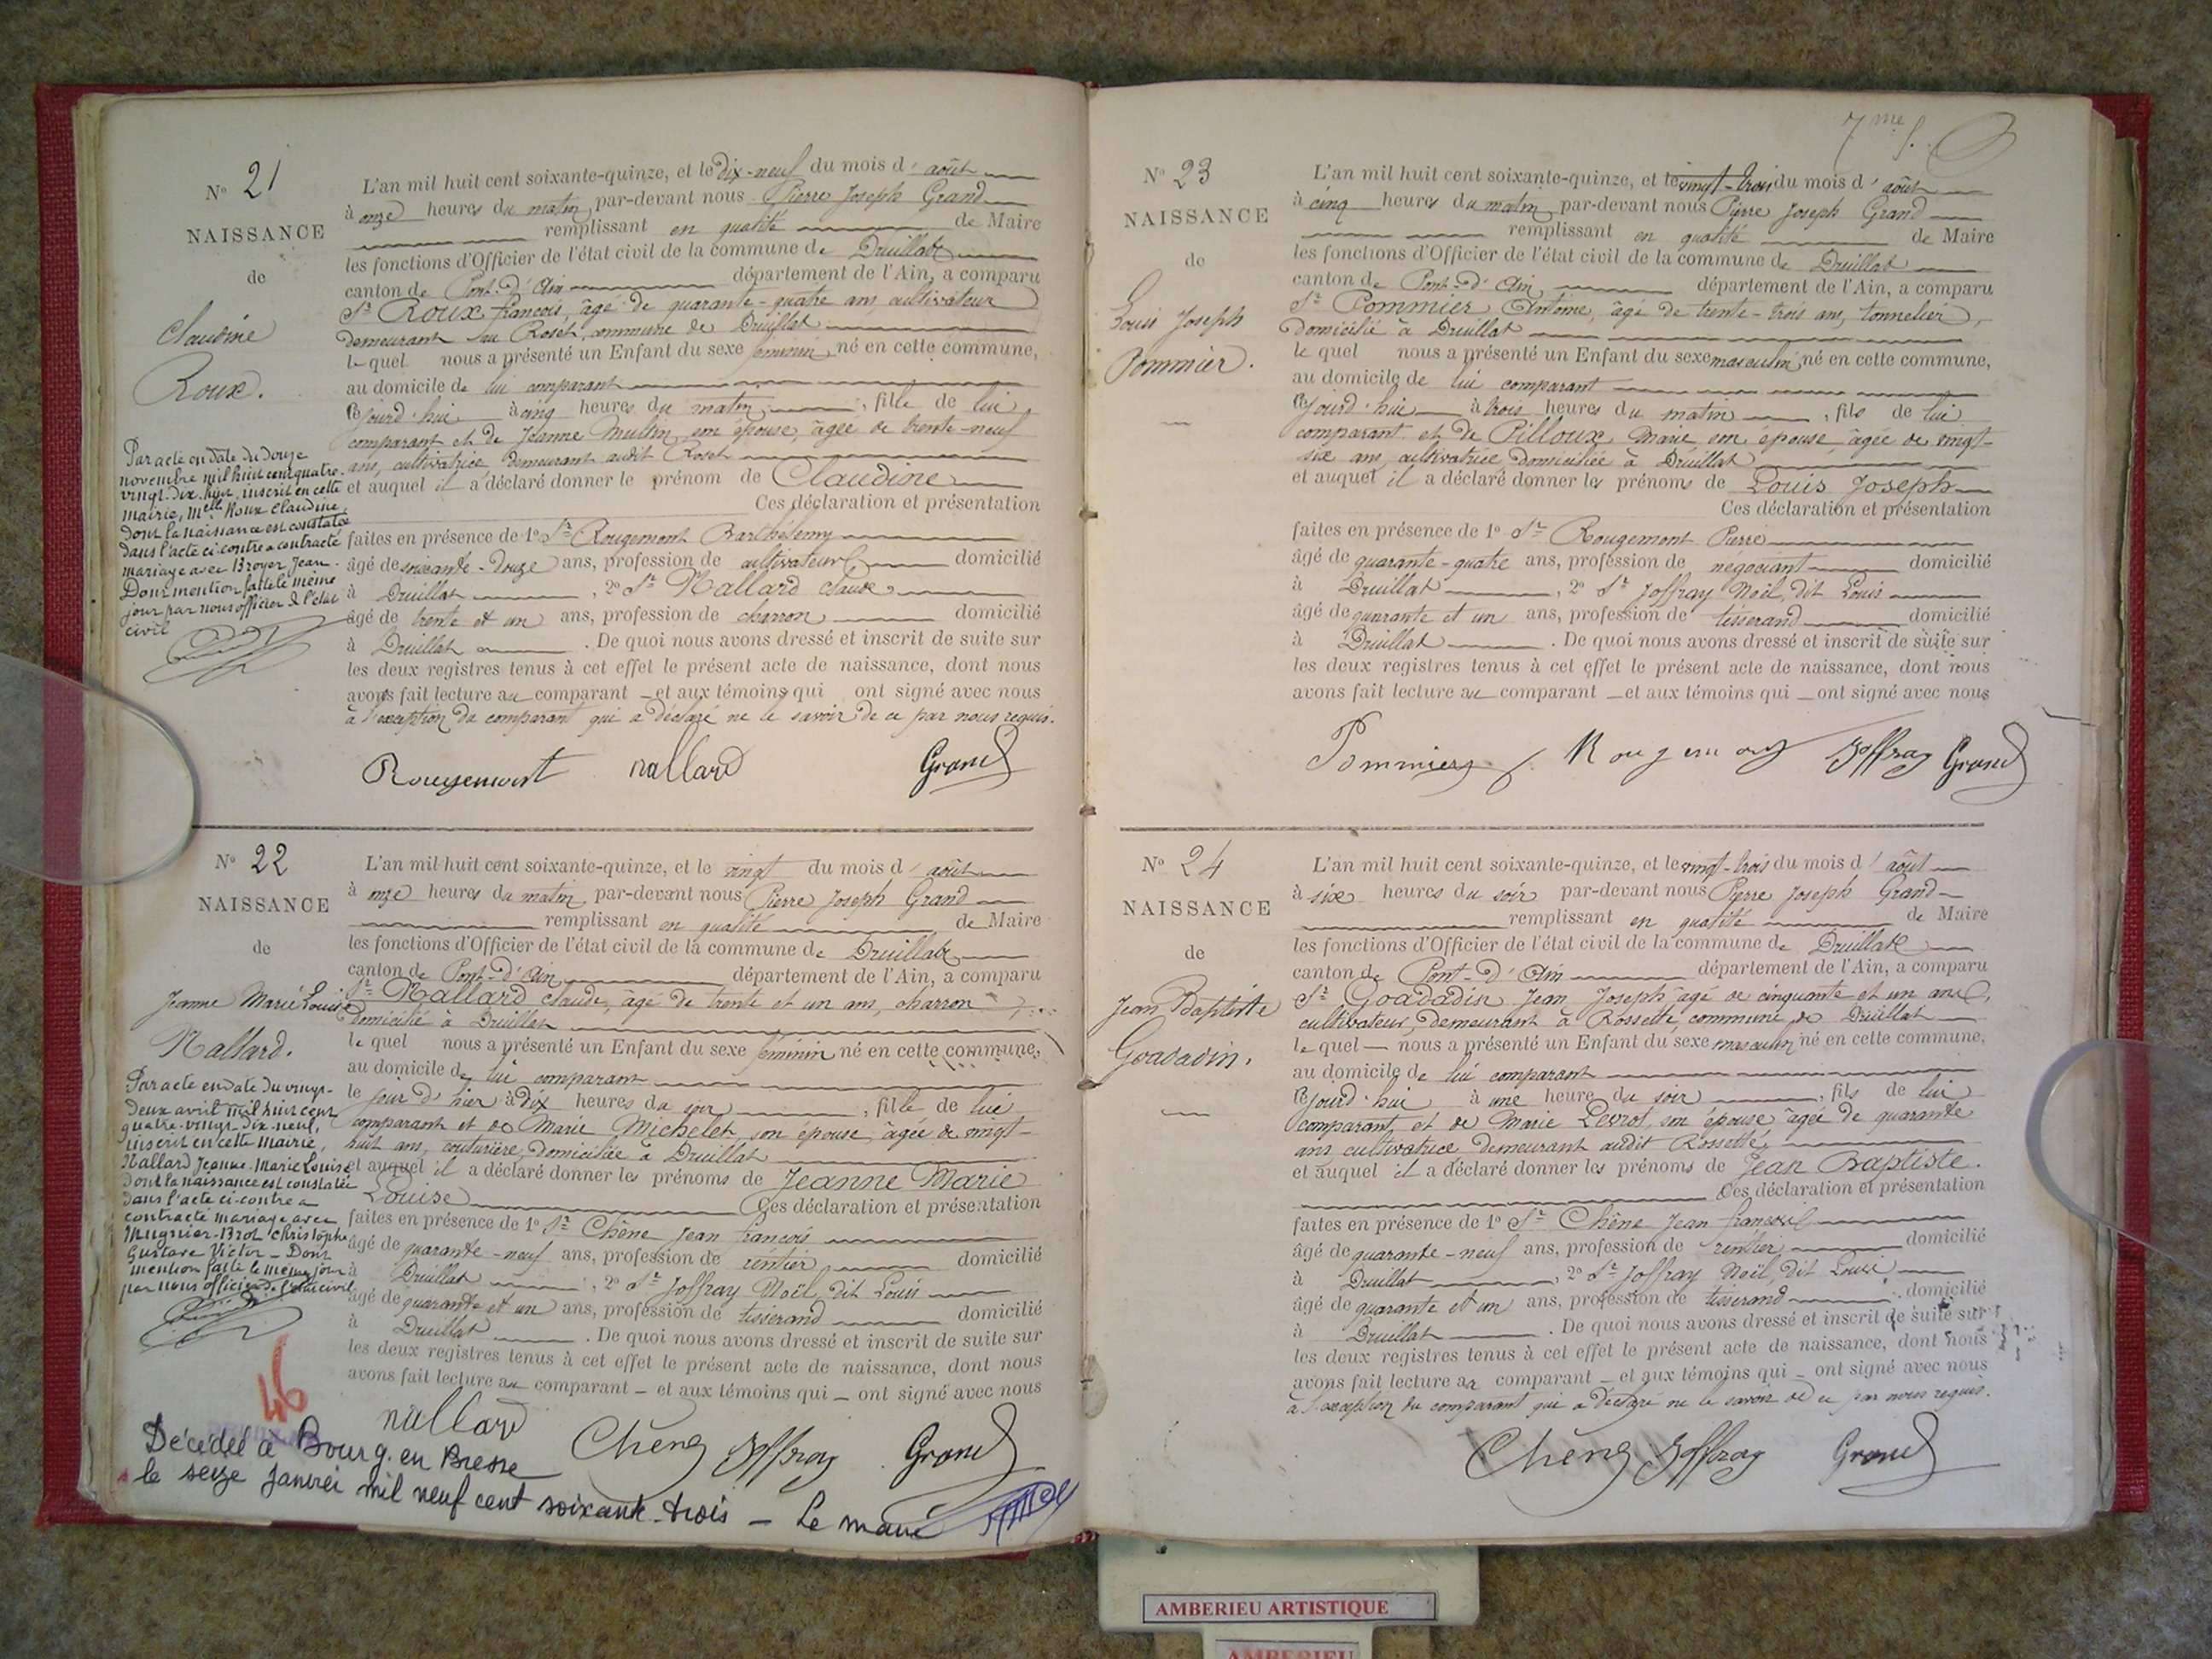 N° 21
NAISSANCE
de
Claudine
Roux.
Par acte en date du douze
novembre mil huit cent quatre-
vingt-dix-huit, inscrit en cette
mairie, Melle Roux Claudine
dont la naissance est constatée
dans l'acte ci-contre a contracté
mariage avec Broyer Jean.
Dont mention faite le même
jour par nous officier de l'état
civil
L'an mil huit cent soixante-quinze, et le dix-neuf du mois d'août
à onze heures du matin, par-devant nous Pierre Joseph Grand
remplissant en qualité de Maire
les fonctions d'Officier de l'état civil de la commune de Druillat
canton de Pont-d'Ain département de l'Ain, a comparu
Sr Roux françois, âgé de quarante-quatre ans cultivateur
demeurant au Roset, commune de Druillat
lequel nous a présenté un Enfant du sexe féminin, né en cette commune,
au domicile de lui comparant
cejourd'hui à cinq heures du matin, fille de lui
comparant et de Jeanne Mullin, son épouse, âgée de trente-neuf
ans, cultivatrice, demeurant audit Roset
et auquel il a déclaré donner le prénom de Claudine
Ces déclaration et présentation
faites en présence de 1° Sr Rougemont Barthélemy
âgé de soixante-douze ans, profession de cultivateur domicilié
à Druillat, 2° Sr Nallard Claude
âgé de trente et un ans, profession de charron domicilié
à Druillat. De quoi nous avons dressé et inscrit de suite sur
les deux registres tenus à cet effet le présent acte de naissance, dont nous
avons fait lecture au comparant et aux témoins qui ont signé avec nous
à l'exception du comparant qui a déclaré ne le savoir de ce par nous requis.
Rougemont nallard Grand
N° 22
NAISSANCE
de
Jeanne Marie Louise
Nallard.
Par acte en date du vingt-
deux avril mil huit cent
quatre-vingt-dix-neuf,
inscrit en cette mairie,
Nallard Jeanne-Marie Louise
dont la naissance est constatée
dans l'acte ci-contre a
contracté mariage avec
Mugnier-Brot Christophe
Gustave Victor - Dont
mention faite le même jour
par nous officier de l'état civil
L'an mil huit cent soixante-quinze, et le vingt du mois d'août
à onze heures du matin, par-devant nous Pierre Joseph Grand
remplissant en qualité de Maire
les fonctions d'Officier de l'état civil de la commune de Druillat
canton de Pont-d'Ain département de l'Ain, a comparu
Sr Nallard Claude, âgé de trente et un ans, charron
domicilié à Druillat
lequel nous a présenté un Enfant du sexe féminin né en cette commune,
au domicile de lui comparant
le jour d'hier à dix heures du soir, fille de lui
comparant et de Marie Michelet, son épouse, âgée de vingt-
huit ans, couturière, domiciliée à Druillat
et auquel il a déclaré donner les prénoms de Jeanne Marie
Louise Ces déclaration et présentation
faites en présence de 1° Sr Chêne Jean françois
âgé de quarante-neuf ans, profession de rentier domicilié
à Druillat, 2° Sr Joffray Noël, dit Louis
âgé de quarante et un ans, profession de tisserand domicilié
à Druillat. De quoi nous avons dressé et inscrit de suite sur
les deux registres tenus à cet effet le présent acte de naissance, dont nous
avons fait lecture au comparant - et aux témoins qui - ont signé avec nous
nallard Chêne Joffray Grand
46
Décédée à Bourg-en Bresse
le seize janvier mil neuf cent soixante-trois - Le maire
7me f.
N° 23
NAISSANCE
de
Louis Joseph
Pommier.
L'an mil huit cent soixante-quinze, et le vingt-trois du mois d'août
à cinq heures du matin, par-devant nous Pierre Joseph Grand
remplissant en qualité de Maire
les fonctions d'Officier de l'état civil de la commune de Druillat
canton de Pont-d'Ain, département de l'Ain, a comparu
Sr Pommier Antoine, âgé de trente-trois ans, tonnelier,
domicilié à Druillat
lequel nous a présenté un Enfant du sexe masculin, né en cette commune,
au domicile de lui comparant
cejourd'hui à trois heures du matin, fils de lui
comparant et de Pilloux Marie son épouse, âgée de vingt-
six ans, cultivatrice domiciliée à Druillat
et auquel il a déclaré donner les prénoms de Louis Joseph
Ces déclaration et présentation
faites en présence de 1° Sr Rougemont Pierre
âgé de quarante-quatre ans, profession de négociant domicilié
à Druillat, 2° Sr Joffray Noël, dit Louis
âgé de quarante et un ans, profession de tisserand domicilié
à Druillat. De quoi nous avons dressé et inscrit de suite sur
les deux registres tenus à cet effet le présent acte de naissance, dont nous
avons fait lecture au comparant - et aux témoins qui - ont signé avec nous
Pommier Rougemont Joffray Grand
N° 24
NAISSANCE
de
Jean Baptiste
Goadadin.
L'an mil huit cent soixante-quinze, et le vingt-trois du mois d'août
à six heures du soir par-devant nous Pierre Joseph Grand
remplissant en qualité de Maire
les fonctions d'Officier de l'état civil de la commune de Druillat
canton de Pont-d'Ain département de l'Ain, a comparu
Sr Goadadin Jean Joseph âgé de cinquante et un ans,
cultivateur, demeurant à Rossette, commune de Druillat
lequel - nous a présenté un Enfant du sexe masculin, né en cette commune,
au domicile de lui comparant
cejourd'hui à une heure du soir, fils de lui
comparant et de Marie Pevrot, son épouse âgée de quarante
ans cultivatrice demeurant audit Rossette,
et auquel il a déclaré donner les prénoms de Jean Baptiste.
Ces déclaration et présentation
faites en présence de 1° Sr Chêne Jean françois
âgé de quarante-neuf ans, profession de rentier, domicilié
à Druillat, 2° Sr Joffray Noël, dit Louis, 
âgé de quarante et un ans, profession de tisserand domicilié
à Druillat. De quoi nous avons dressé et inscrit de suite sur
les deux registres tenus à cet effet le présent acte de naissance, dont nous
avons fait lecture au comparant - et aux témoins qui - ont signé avec nous
à l'exception du comparant qui a déclaré ne le savoir de ce par nous requis.
Chêne Joffray Grand
AMBERIEU ARTISTIQUE
AMBERIEU